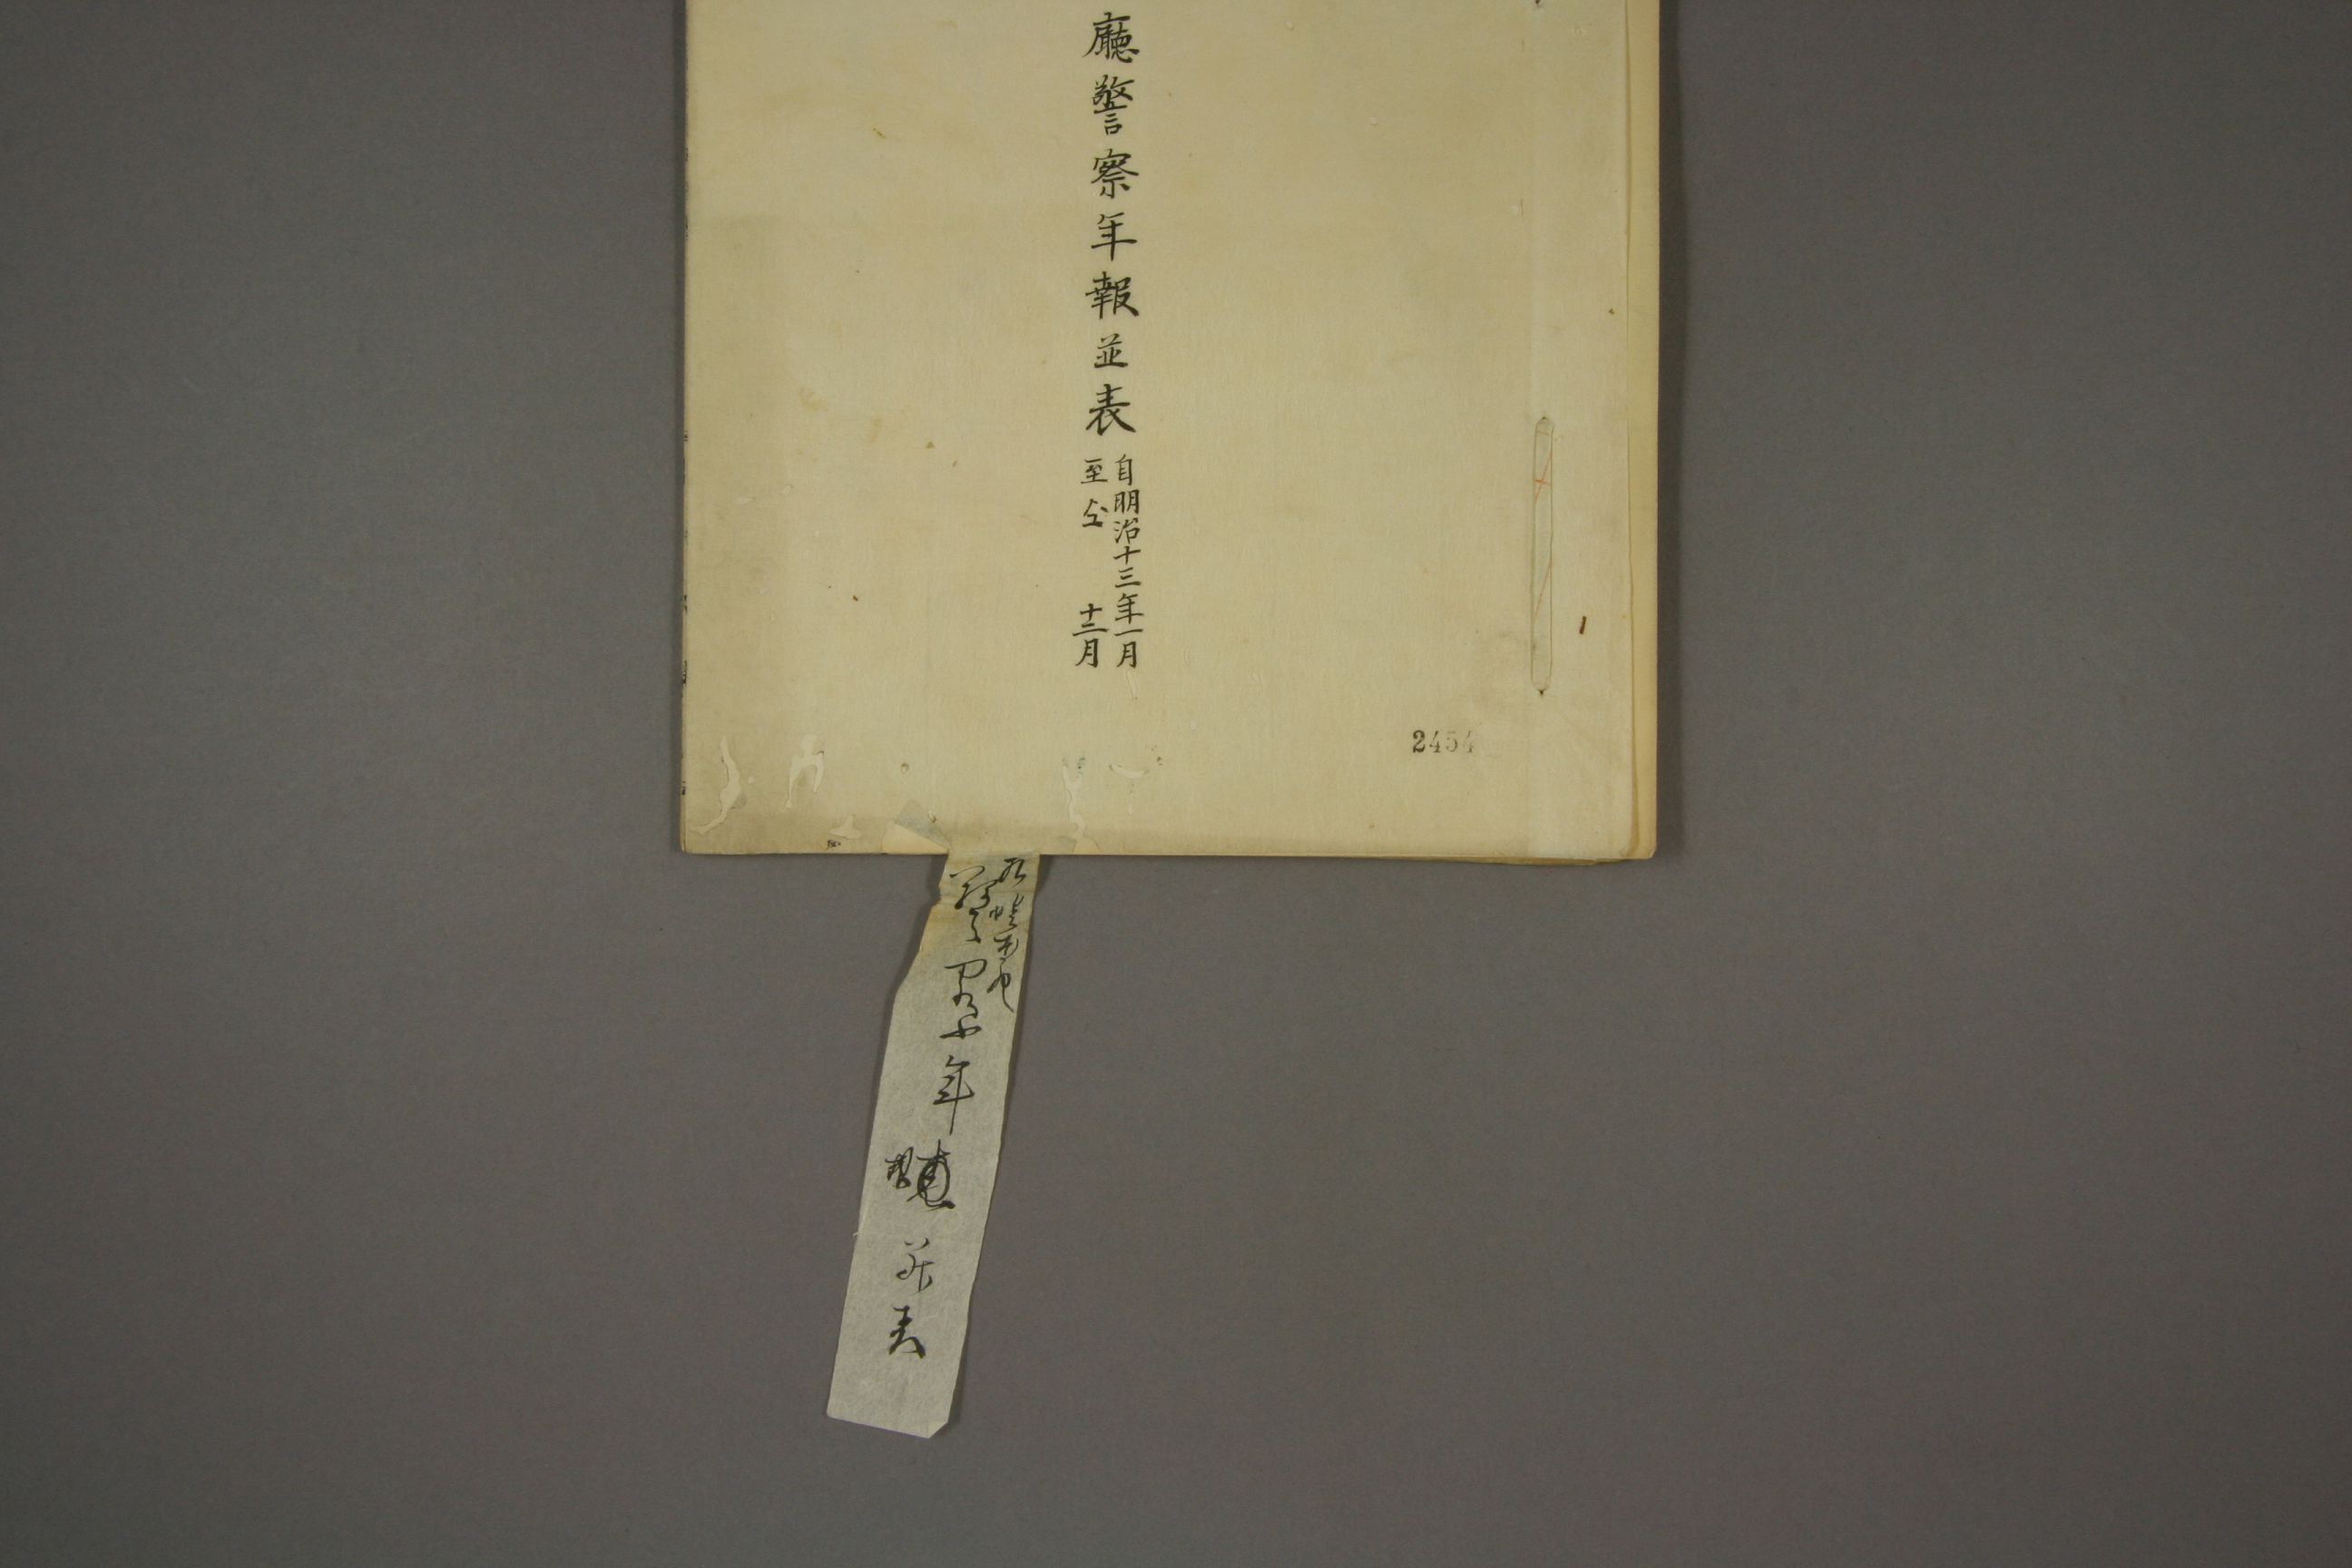 廳警察年報並表
自明治十三年一月
至仝 十二月
2454
年報并表